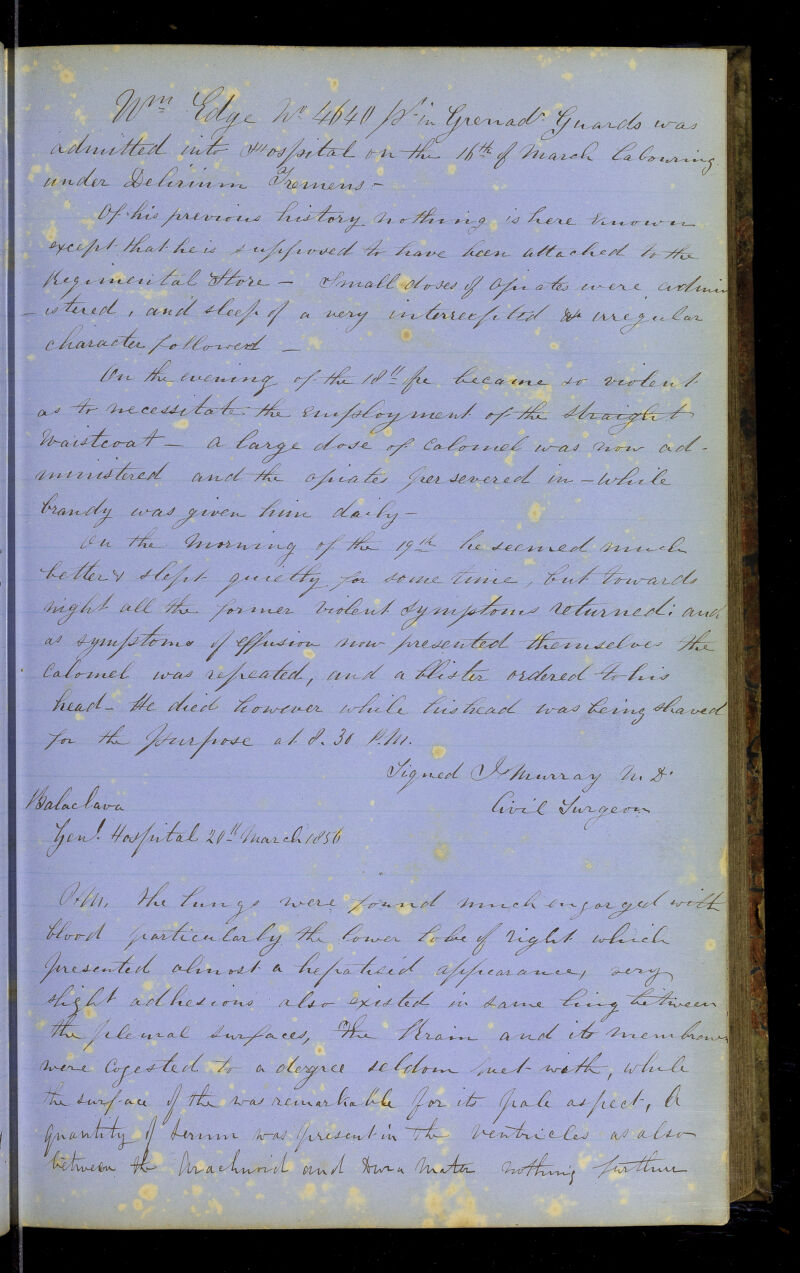 Wm Edge No 4640 Pt in Grenadr Guards was
admitted into Hospital on the 16th of March labouring
under Delirium Tremens -
Of his previous history nothing is here known
except that he is supposed to have been attached to the
Regimental Store - Small doses of opiates were admin
-istered, and sleep of a very interrupted & irregular
character followed -
On the evening of the 18th he became so violent
as to necessitate the employment of the straight
Waistcoat - a large dose of Calomel was now ad-
ministered and the opiates persevered in - while
brandy was given him daily -
On the morning of the 19th he seemed much
better & slept quietly for some time, but towards
night all the former violent symptoms returned: and
as symptoms of effusion now presented themselves the
Calomel was repeated, and a blister ordered to his
head - He died however while his head was being shaved
for the purpose at 8.30 P.M.
Signed J Murray M D
Balaclava Civil Surgeon
Genl. Hospital 20th March 1856
P.M. The lungs were found much engorged with
blood particularly the lower lobe of right which
presented almost a hepatisid appearance, very
slight adhesions also existed in same lung between
the pleural surfaces, The Brain and its membranes
were cogested to a degree seldom met with, while
the surface of the was remarkable for its pale aspect, A
quantity of serum was present in the ventricles as also
between the Arachnoid and Dura Mater nothing further